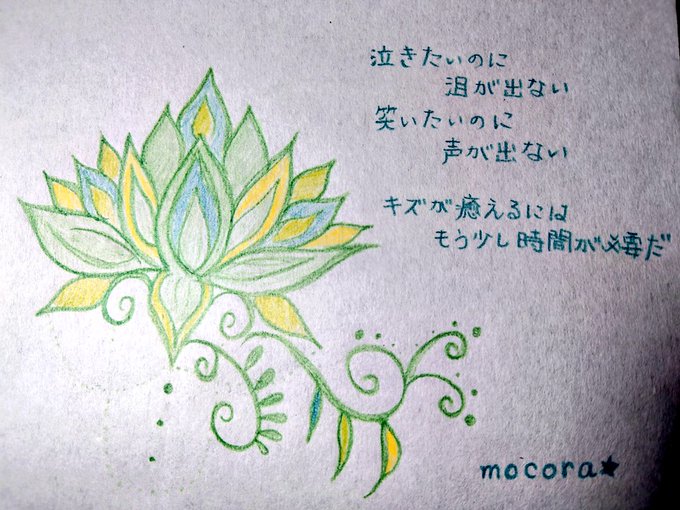 泣きたいのに
泪が出ない
笑いたいのに
声が出ない
キズが癒えるには
もう少し時間が必要だ
mocora★